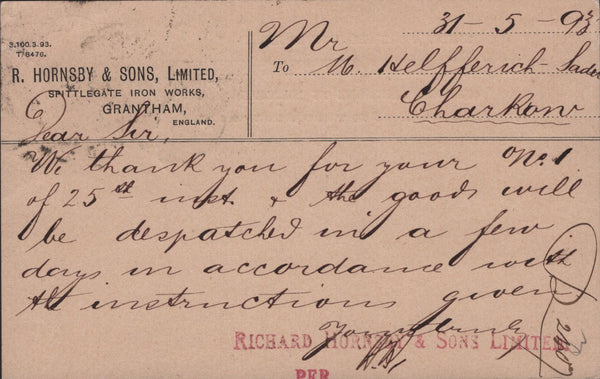 31-5-93
3.100.3.93.
T/8476.
R. HORNSBY & SONS, LIMITED,
SPITTLEGATE IRON WORKS,
GRANTHAM,
ENGLAND.
Mr
To M. Helfferich-Sade
Charkow
Dear Sir,
We thank you for your No. 1
of 25th inst. & the goods will
be despatched in a few
days in accordance with
the instructions given
Yours truly
RICHARD HORNSBY & SONS LIMITED
PER